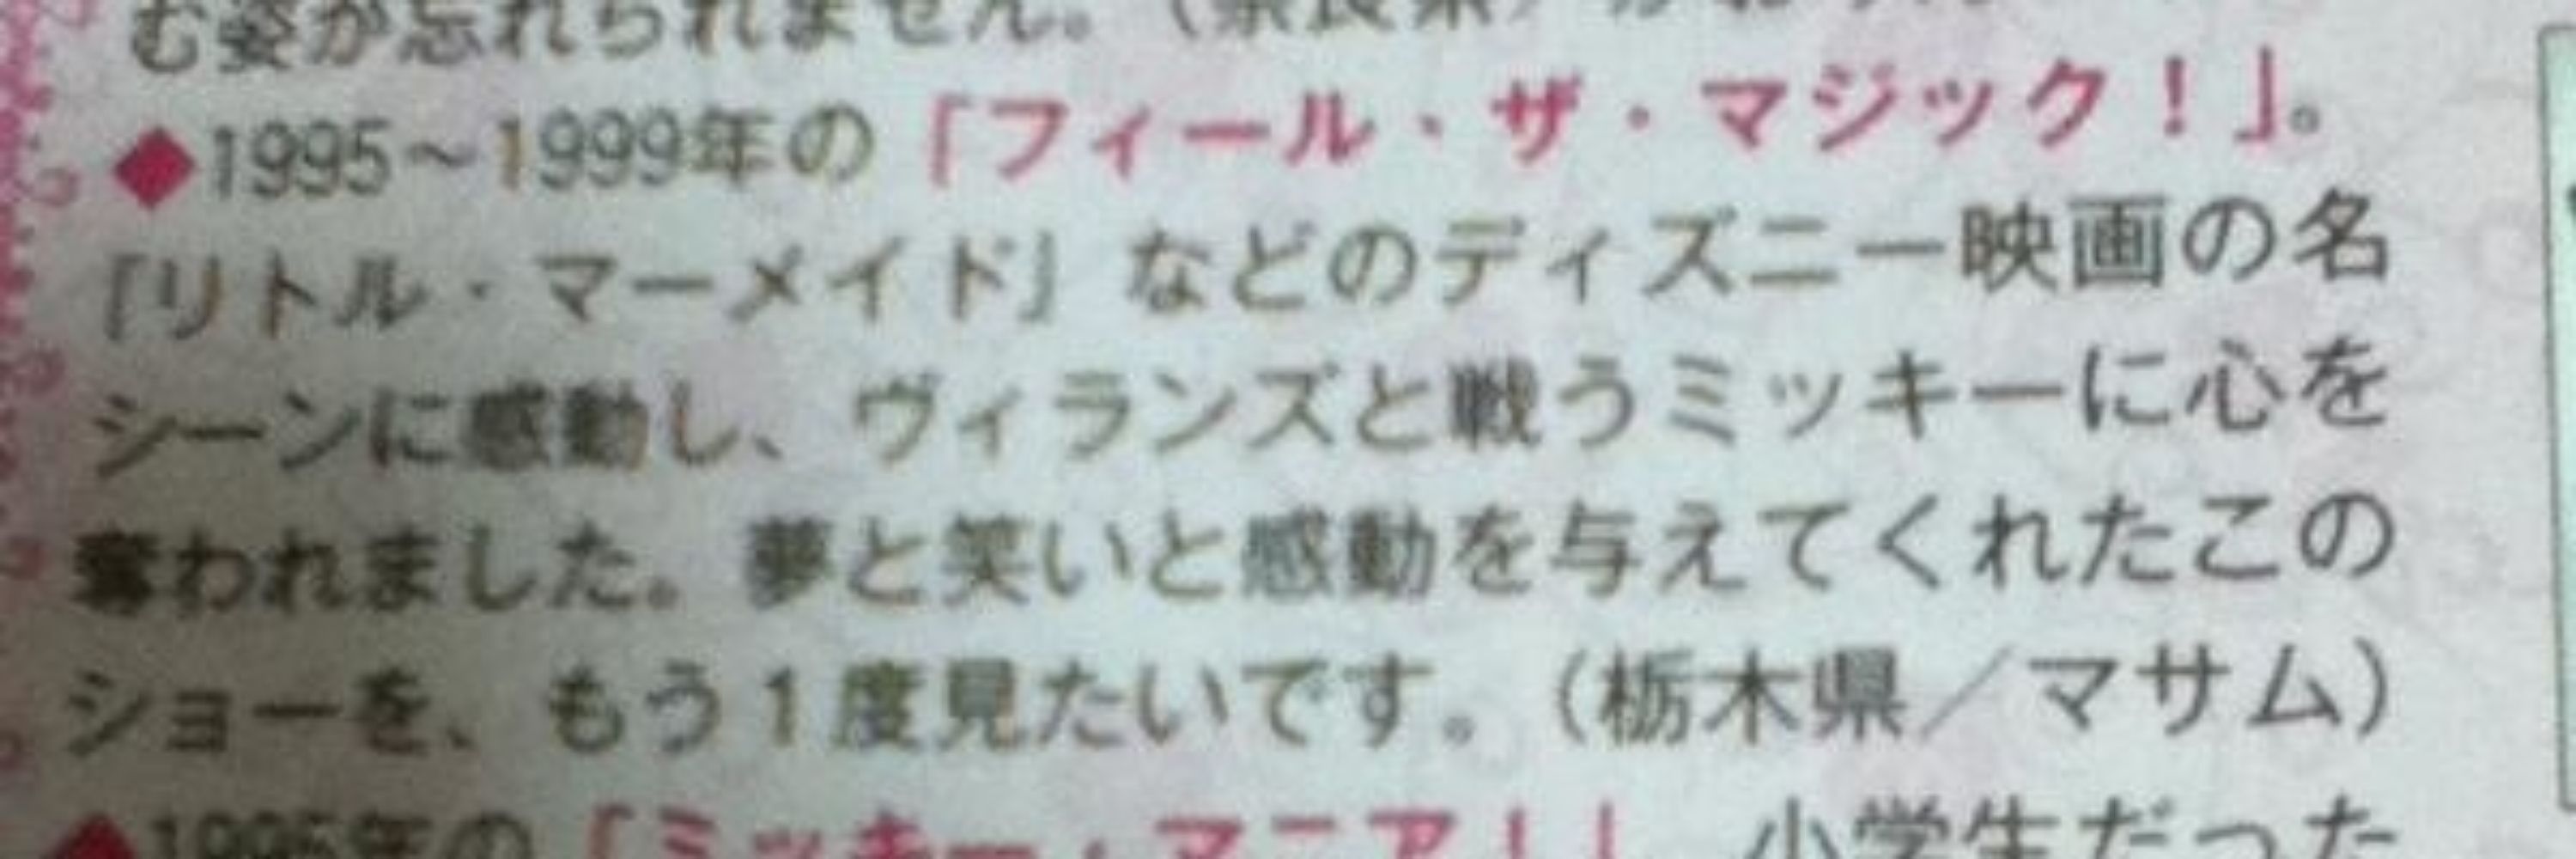 む姿が忘れられません。（奈良県／
◆1995～1999年の「フィール・ザ・マジック！」。
「リトル・マーメイド」などのディズニー映画の名
シーンに感動し、ヴィランズと戦うミッキーに心を
奪われました。夢と笑いと感動を与えてくれたこの
ショーを、もう1度見たいです。（栃木県／マサム）
◆1995年の「ミッキー・マニア！」 小学生だった